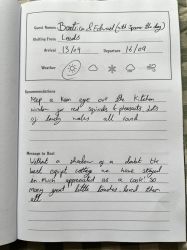 Guest Names: Beatrice & Edward (with Spence the dog)
Visiting From: Leeds
Arrival 13/09 Departure 16/09
Weather
Recommendations
Keep a keen eye out the kitchen
window for red squirrels & pheasants. Lots
of lovely walks all round
Message to Host
Without a shadow of a doubt the
best cottage we have stayed
in. Much appreciated as a cook! So
many great little touches, loved them
all.